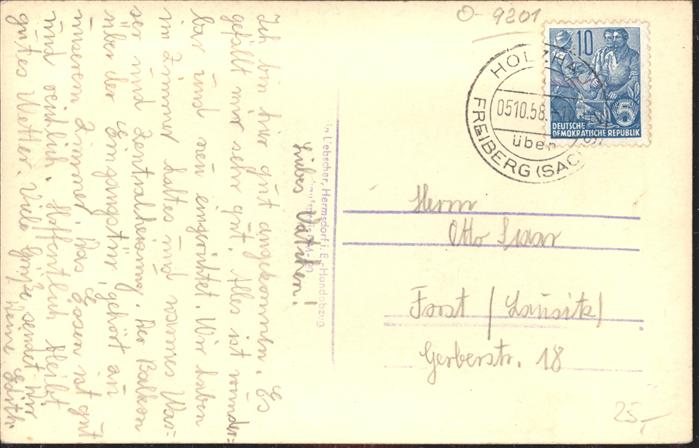 O-9201
10
5
DEUTSCHE
DEMOKRATISCHE REPUBLIK
HOLZHAU
05.10.58.
über
FREIBERG (SACHS)
Liebes Väterchen!
Ich bin hier gut angekommen. Es
gefällt mir sehr gut. Alles ist wunder=
bar und neu eingerichtet. Wir haben
im Zimmer kaltes und warmes Was=
ser und Zentralheizung. Der Balkon
über der Eingangstür, gehört zu
unserem Zimmer. Das Essen ist gut
und reichlich. Hoffentlich bleibt
gutes Wetter. Viele Grüße sendet Dir
Deine Edith
Liebscher, Hermsdorf i. E. - Handabzug
Herrn
Otto
Forst / Lausitz
Gerberstr. 18
25,-